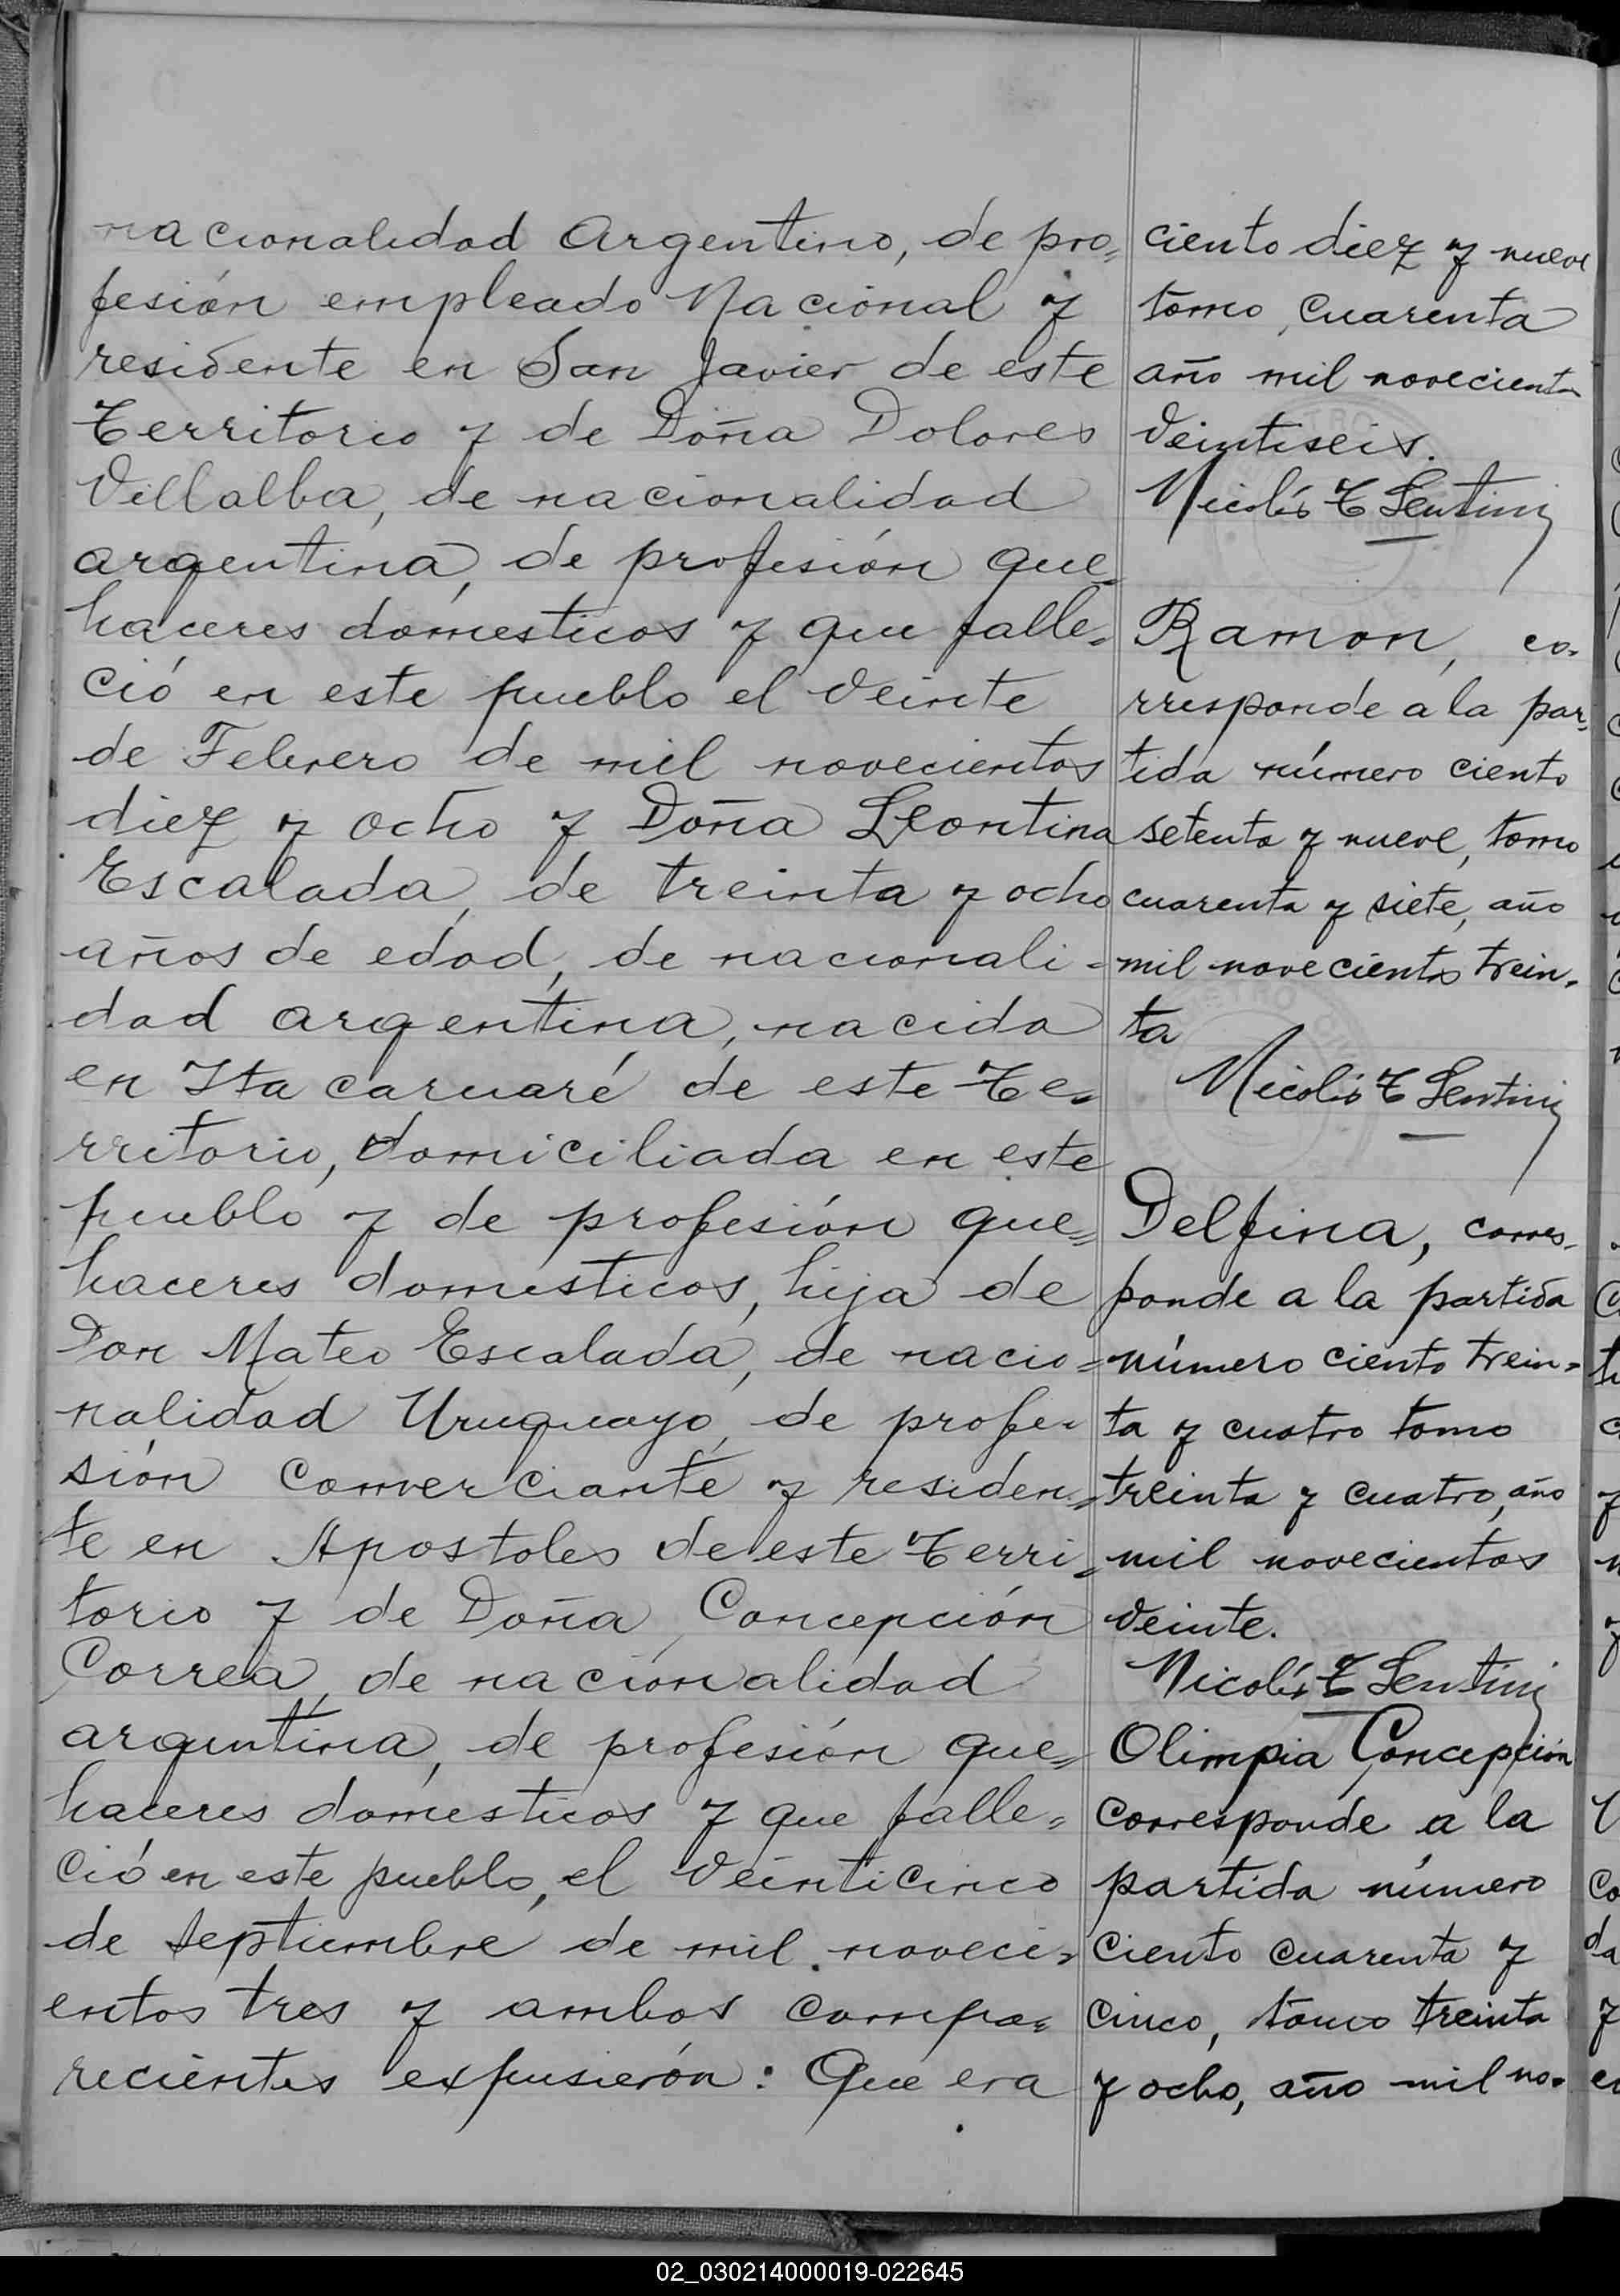 nacionalidad Argentino, de pro=
fesión empleado Nacional y
residente en San Javier de este
Territorio y de Doña Dolores
Villalba, de nacionalidad
argentina, de profesión que=
haceres domesticos y que falle=
ció en este pueblo el veinte
de Febrero de mil novecientos
diez y ocho y Doña Leontina
Escalada, de treinta y ocho
años de edad, de nacionali=
dad argentina, nacida
en Ita caruaré de este Te=
rritorio, domiciliada en este
pueblo y de profesión que=
haceres domesticos, hija de
Don Mateo Escalada, de nacio=
nalidad Uruguayo, de profe=
sión comerciante y residen=
te en Apostoles de este Terri=
torio y de Doña Concepción
Correa, de nacionalidad
argentina, de profesión que=
haceres domesticos y que falle=
ció en este pueblo, el veinticinco
de septiembre de mil noveci=
entos tres y ambos compa=
recientes expusierón: Que era
ciento diez y nueve
tomo cuarenta
año mil novecientos
veintiseis.
Nicolás T Sentini
Ramon, co=
rresponde a la par=
tida número ciento
setenta y nueve, tomo
cuarenta y siete, año
mil novecientos trein=
ta
Nicolás T Sentini
Delfina, corres=
ponde a la partida
número ciento trein=
ta y cuatro tomo
treinta y cuatro, año
mil novecientos
veinte.
Nicolás T Sentini
Olimpia Concepción
corresponde a la
partida número
ciento cuarenta y
cinco, tomo treinta
y ocho, año mil no=
02_030214000019-022645